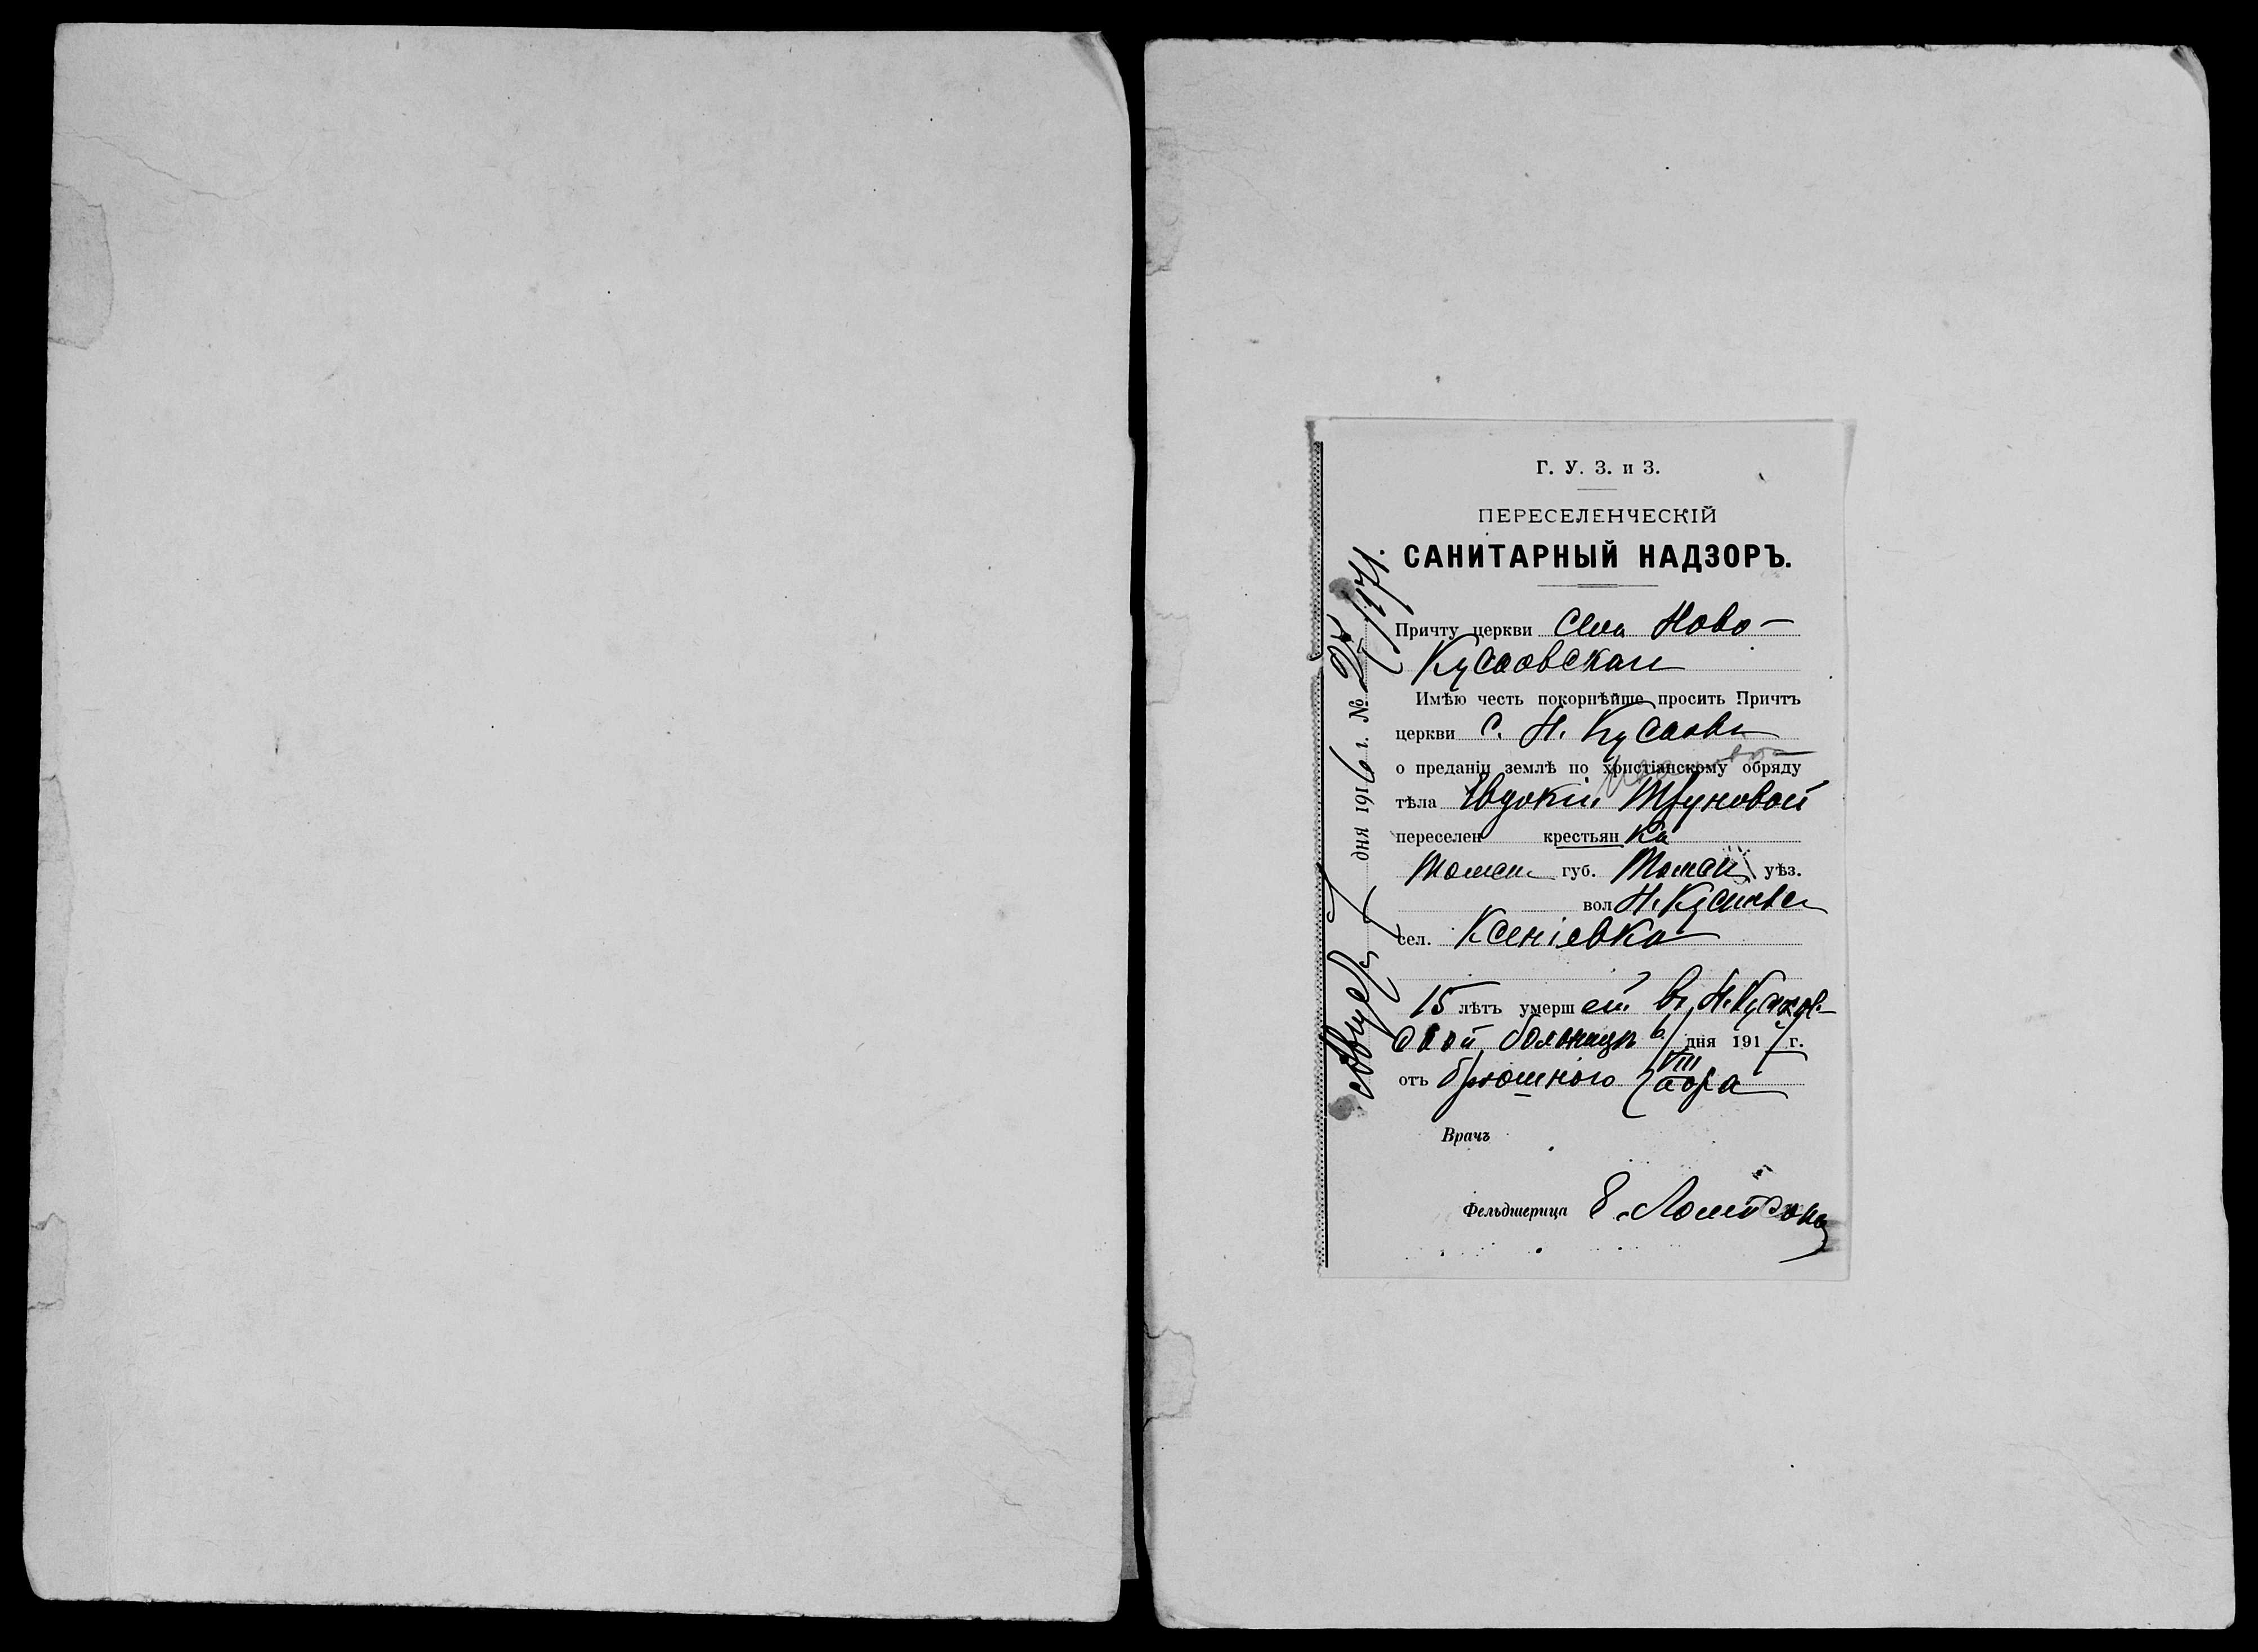 Г. У. З. и З.
ПЕРЕСЕЛЕНЧЕСКІЙ
САНИТАРНЫЙ НАДЗОРЪ.
Причту церкви села Ново-
Кусковская
Имѣю честь покорнѣйше просить Причтъ
церкви С. Н. Кусковы
о преданіи землѣ по христіанскому обряду
тѣла Евдокіи Труновой
переселен крестьян ка
Томск губ. Томск уѣз.
вол Н. Кусковск
сел. Ксеніевка
15 лѣтъ умерш ей въ Н. Кусков
ской больницѣ 6/VIII дня 191 г.
отъ брюшного
Врачъ
Фельдшерица Е.
Августа 7 дня 1916 г. № 171.